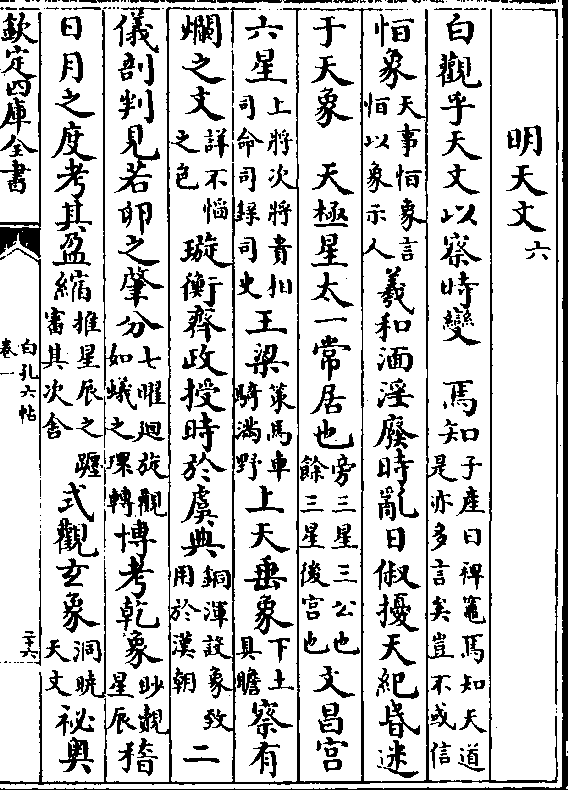 明天文六
白觀乎天文以察時變　焉知子產曰裨竈焉知天道是亦多言矣豈不或信
恒象天事恒象言恒以象示人羲和湎淫廢時亂日俶擾天紀昏迷
于天象　天極星太一常居也旁三星三公也餘三星後宮也文昌宮
六星上將次將貴相司命司録司史王梁策馬車騎滿野上天垂象下土具瞻察有
爛之文詳不惱之色璇衡齊政授時於虞典銅渾設象致用於漢朝二
儀剖判見若卵之肇分七曜迴旋觀如蟻之環轉博考乾象眇覿星辰稽
日月之度考其盈縮推星辰之躔審其次舍式觀玄象洞曉天文祕奥
欽定四庫全書
白孔六帖
卷一
二十六